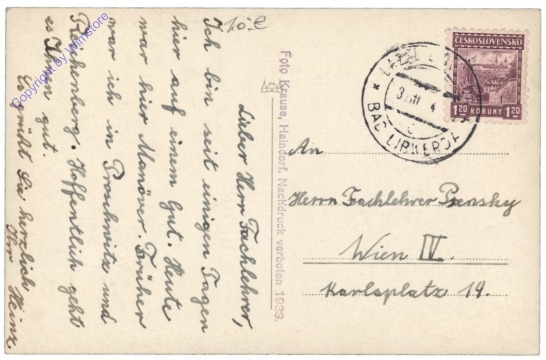 10.-€
Lieber Herr Fachlehrer,
Ich bin seit einigen Tagen
hier auf einem Gut. Heute
war hier Manöver. Früher
war ich in Proschwitz und
Reichenberg. Hoffentlich geht
es Ihnen gut.
Es grüßt Sie herzlich
Ihr Heinz
Copyright by Wimstore
Foto Krause, Haindorf. Nachdruck verboten 1933.
ČESKOSLOVENSKO
1.20 KORUNY 1.20
BAD LIBVERDA
An
Herrn Fachlehrer Prensky
Wien IV.
Karlsplatz 14.